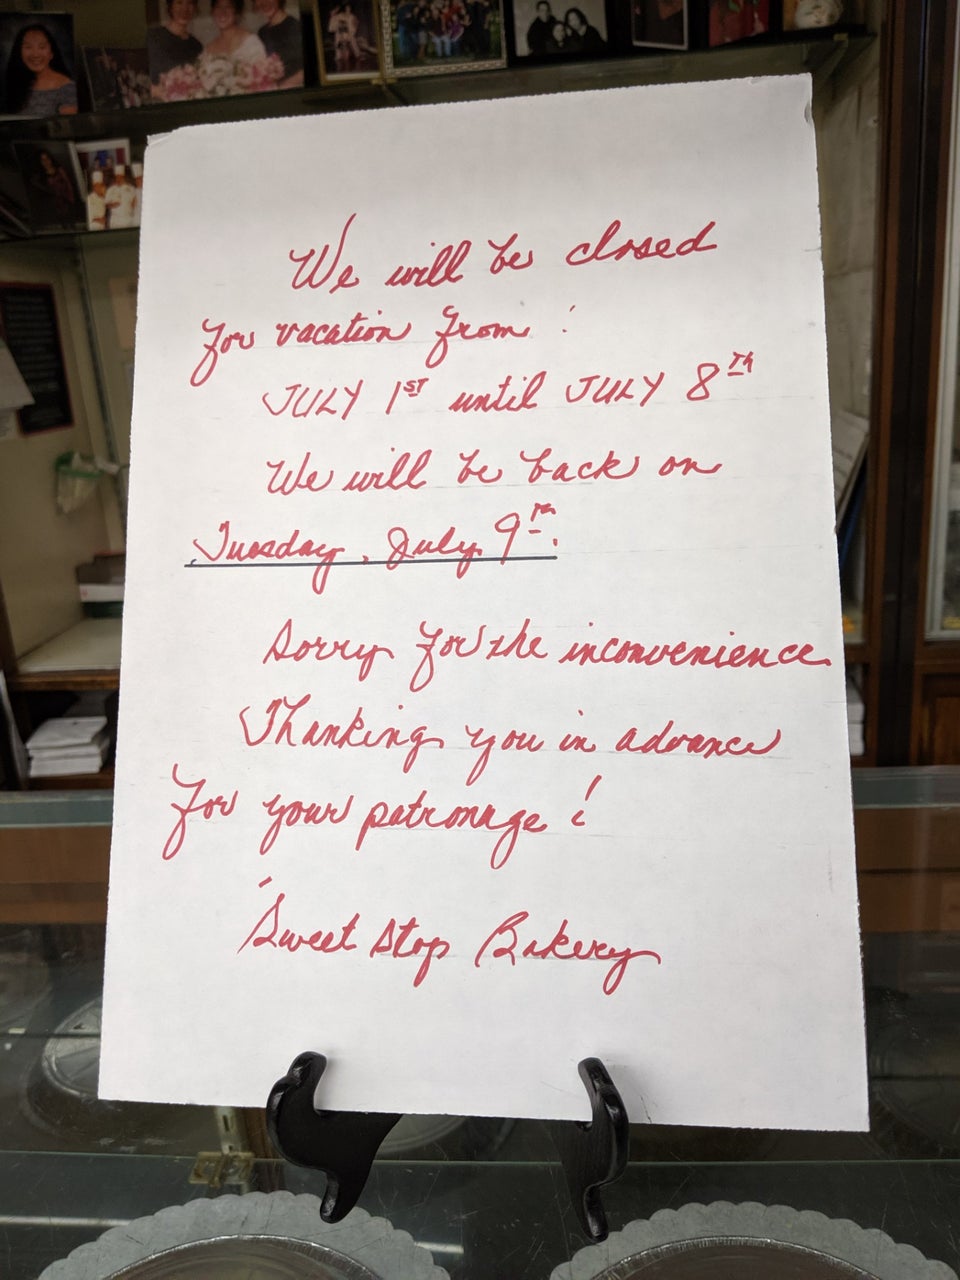 We will be closed
for vacation from:
JULY 1ST until JULY 8TH
We will be back on
Tuesday, July 9th.
Sorry for the inconvenience
Thanking you in advance
for your patronage!
Sweet Stop Bakery